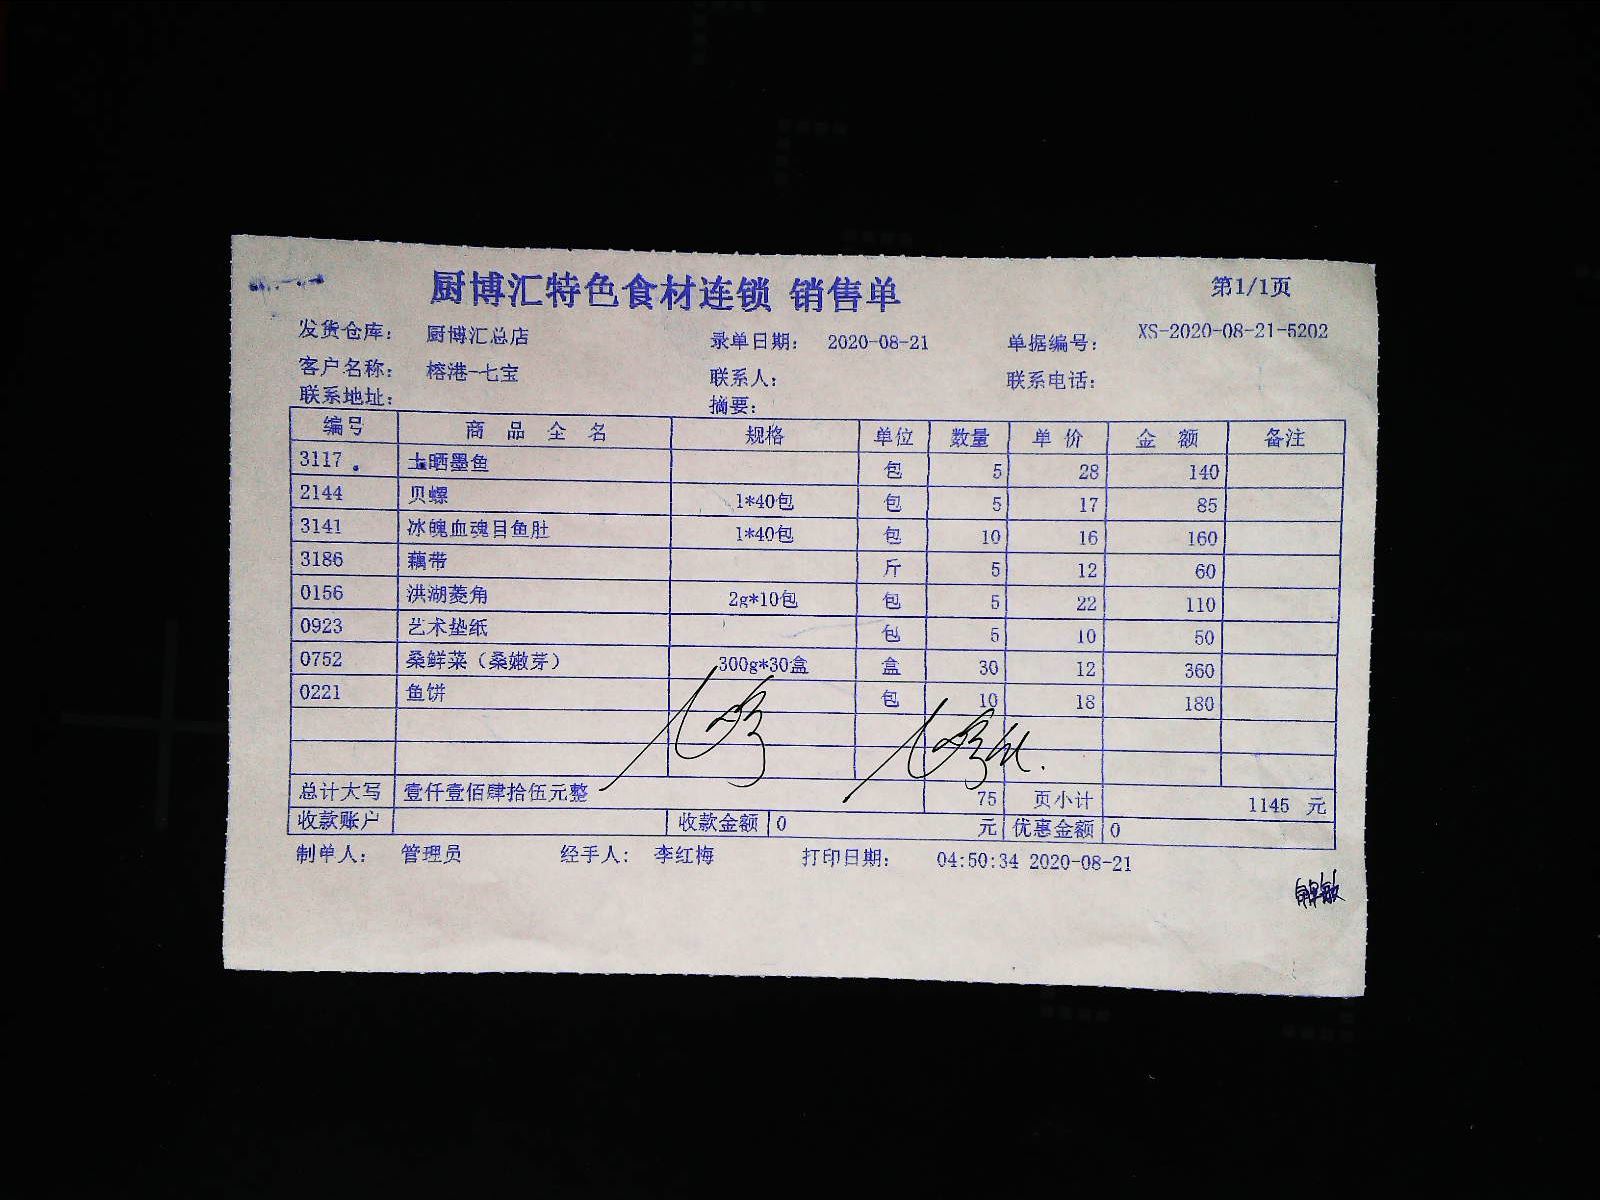 厨博汇特色食材连锁 销售单 第1/1页
发货仓库： 厨博汇总店 录单日期： 2020-08-21 单据编号： XS-2020-08-21-5202
客户名称： 榕港-七宝 联系人： 联系电话：
联系地址： 摘要：
编号 商品全名 规格 单位 数量 单价 金额 备注
3117 土晒墨鱼 包 5 28 140
2144 贝螺 1*40包 包 5 17 85
3141 冰魄血魂目鱼肚 1*40包 包 10 16 160
3186 藕带 斤 5 12 60
0156 洪湖菱角 2g*10包 包 5 22 110
0923 艺术垫纸 包 5 10 50
0752 桑鲜菜（桑嫩芽） 300g*30盒 盒 30 12 360
0221 鱼饼 包 10 18 180
总计大写 壹仟壹佰肆拾伍元整 75 页小计 1145 元
收款账户 收款金额 0 元 优惠金额 0
制单人： 管理员 经手人： 李红梅 打印日期： 04:50:34 2020-08-21